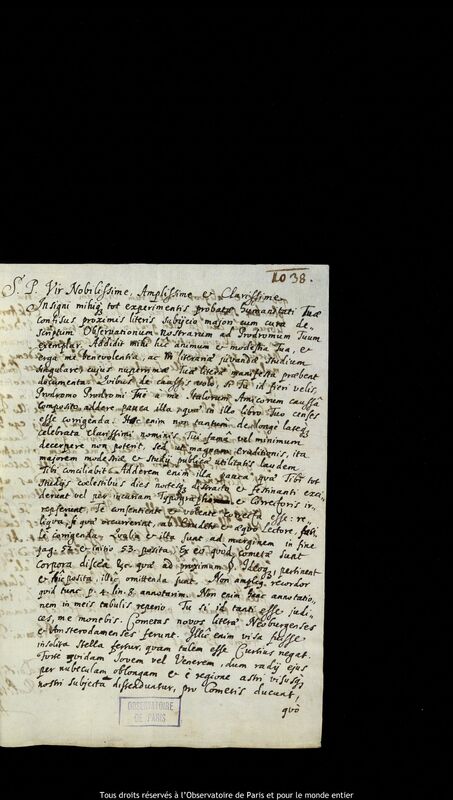 1038.
S. P. Vir Nobilissime, Amplissime et Clarissime
Insigni mihiq; tot experimentis probatæ Humanitati Tuæ
confisus proximis literis subijcio majori cum cura de-
scriptum Observationum nostrarum ad Prodromum Tuum
exemplar. Addidit mihi hic animum et modestia Tua, et
erga me benevolentia, ac rei literariæ juvandæ studium
singulare, cujus nuperrimæ Tuæ literæ manifesta præbent
documenta. Quibus de causis volo, si Tu id fieri velis,
Prodromo Prodromi Tui a me Italorum Amicorum caussa
composito, addere pauca illa quæ in illo libro Tuo censes
esse corrigenda: Hoc enim non tantum de longe lateq;
celebrata Clarissimi nominis Tui fama vel minimum
decerpere non poterit, sed ut magnam eruditionis, ita
majorem modestiæ et studij publicæ utilitatis laudem
Tibi conciliabit. Adderem enim illa pauca quæ Tibi tot
studijs cœlestibus dies noctesq; distracto et festinanti exci-
derunt vel per incuriam Typographi et Correctoris ir-
repserunt, Te consentiente et volente correcta esse: re-
liqua, si quæ occurrerint, ab erudito et æquo Lectore,
corrigenda. Qualia et illa sunt ad marginem in fine
pag. 52. et initio 53. posita, Ex eo quod cometæ sunt
Corpora disco &c. quæ ad proximum §. Ideoq; pertinent
et hic posita illic omittenda sunt. Non recordor
quid tunc p. 4. lin. 8. annotarim. Non enim hanc annotatio-
nem in meis tabulis reperio. Tu si id tanti esse judi-
ces, me monebis. Cometas novos literæ Neoburgenses
et Amsterodamenses ferunt. Illic enim visa fuisse
insolita stella fertur, quam talem esse Curtius negat.
Forte quidam Jovem vel Venerem, dum radij ejus
per nubeculam oblongam et e regione astri visusq;
nostri subjectam diffunduntur, pro Cometis ducunt,
quò
OBSERVATOIRE
DE PARIS
Tous droits réservés à l'Observatoire de Paris et pour le monde entier